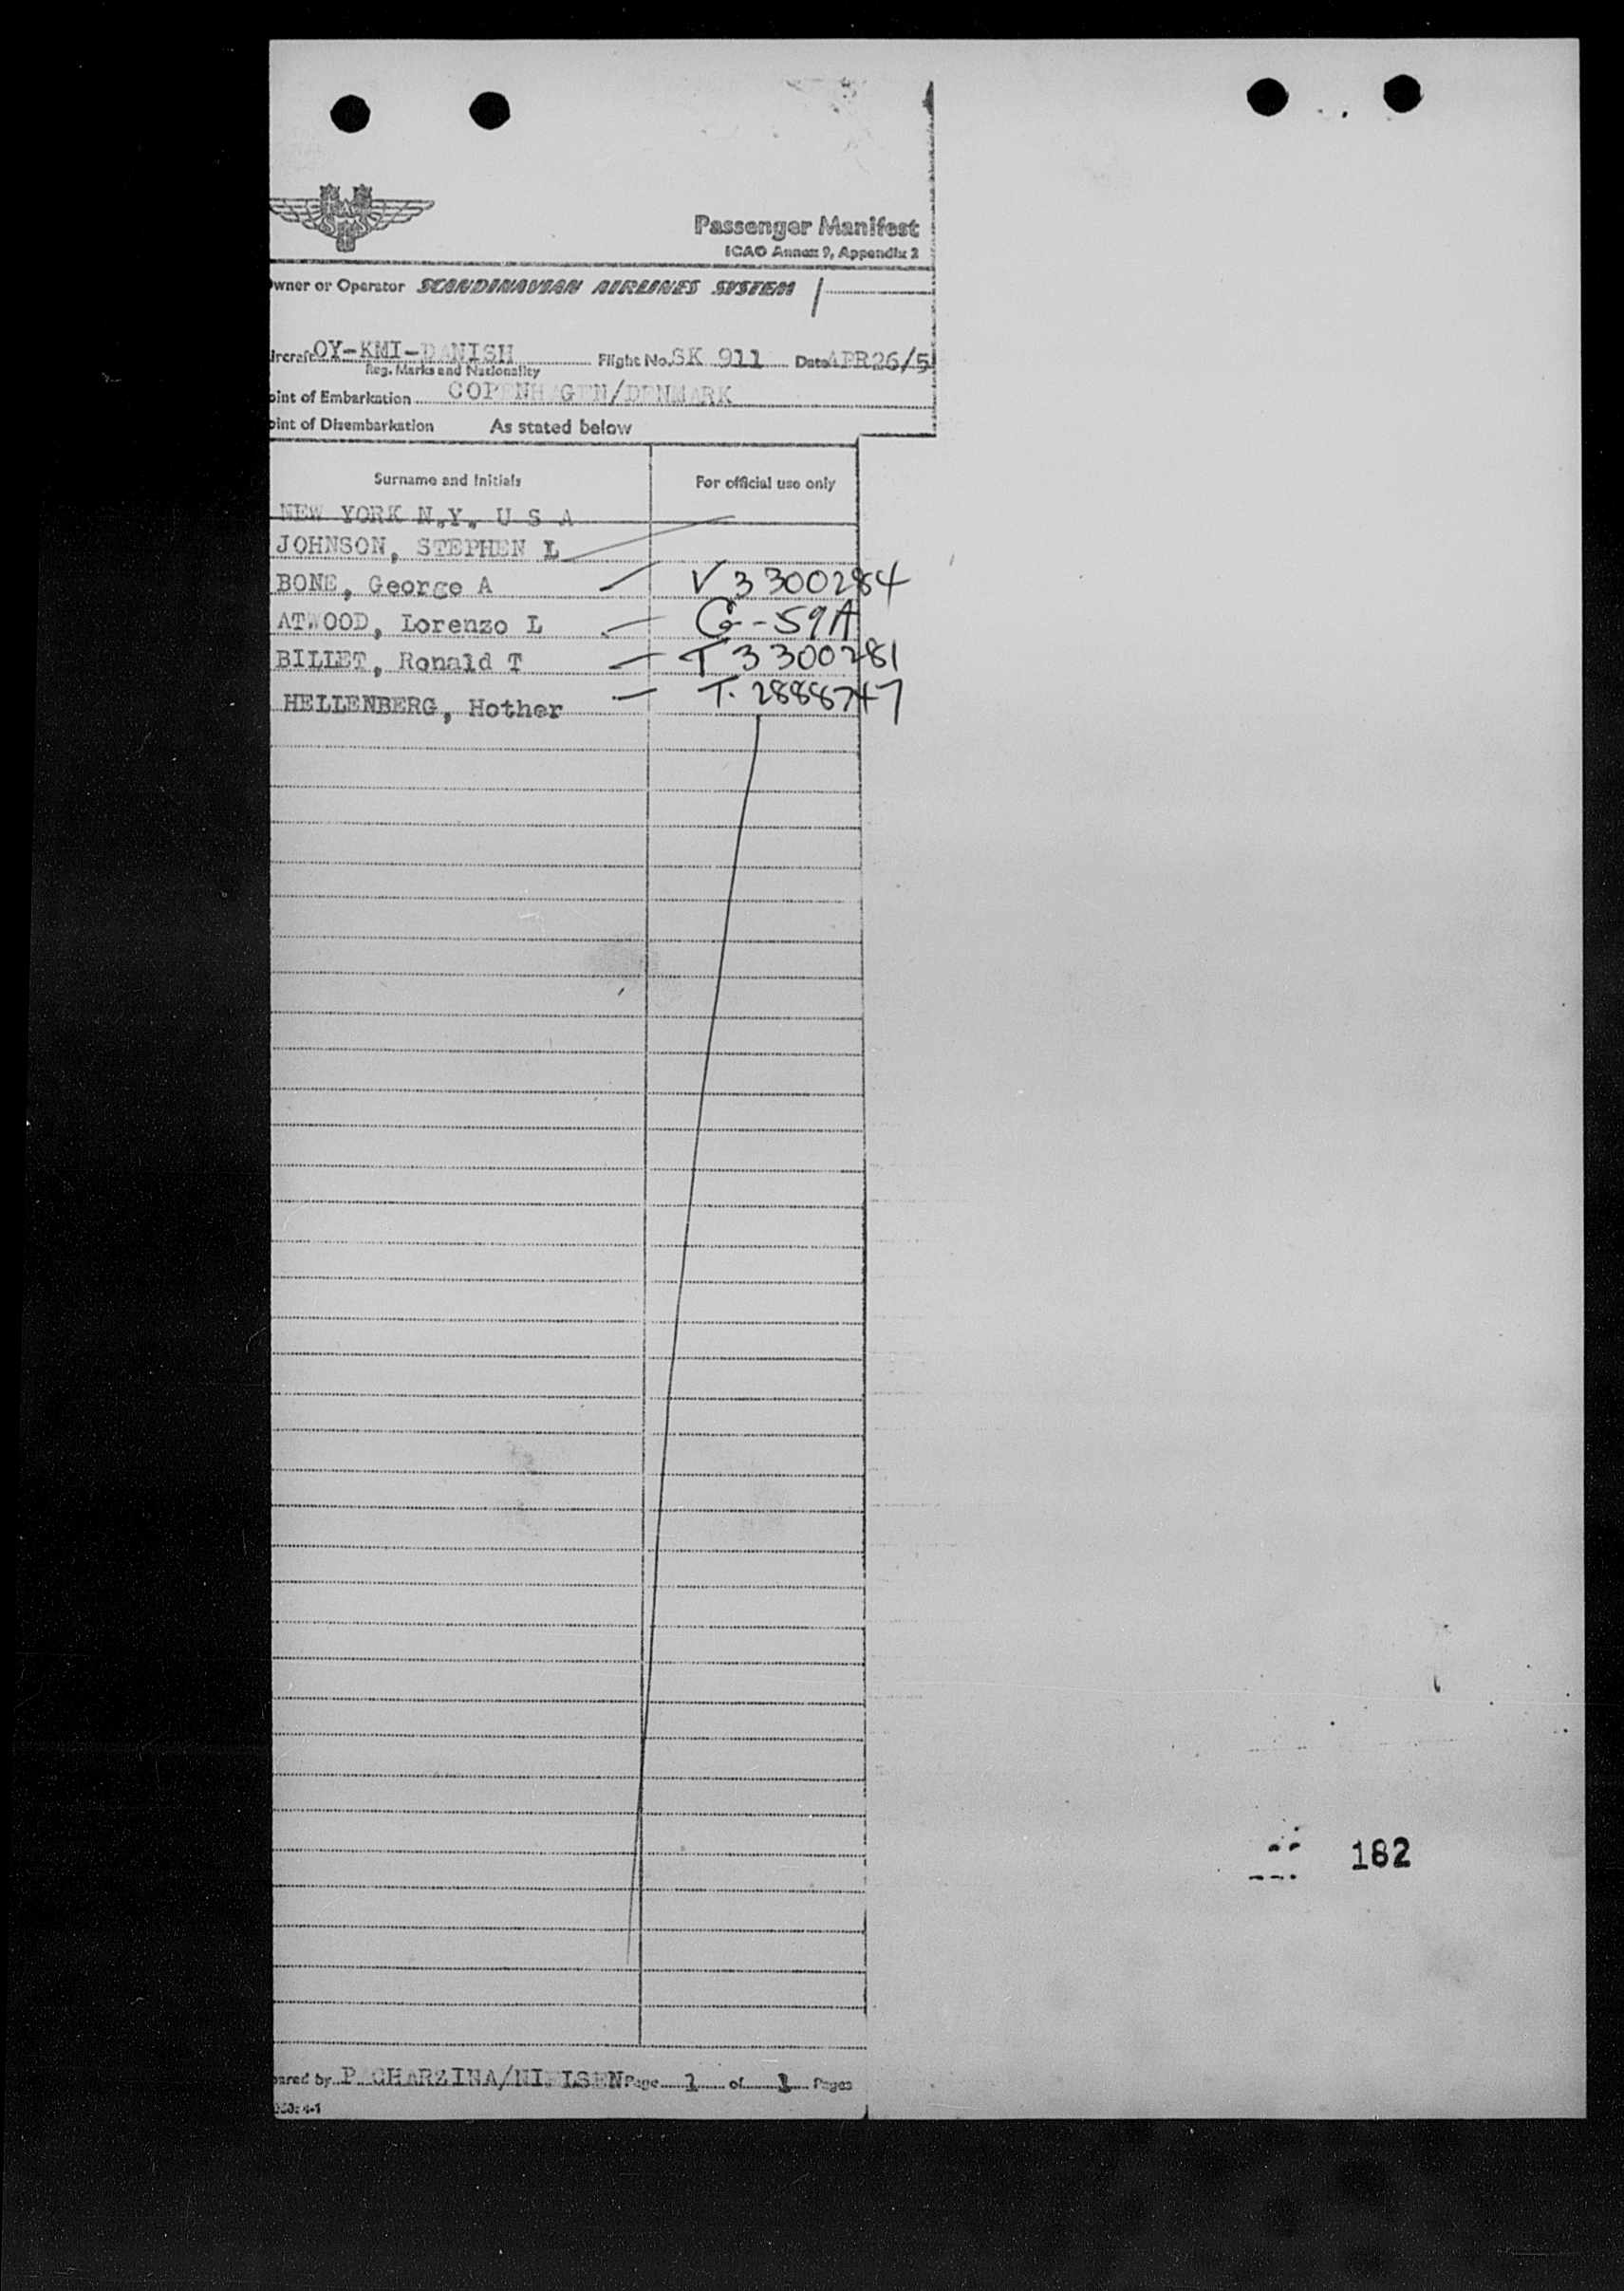 Passenger Manifest
ICAO Annex 9, Appendix 2
wner or Operator SCANDINAVIAN AIRLINES SYSTEM
ircraft OY-KMI-DANISH Flight No. SK 911 Date APR 26/5
Reg. Marks and Nationality
oint of Embarkation COPENHAGEN/DENMARK
oint of Disembarkation As stated below
Surname and Initials For official use only
NEW YORK N.Y. U S A
JOHNSON, STEPHEN L
BONE, George A V 3300284
ATWOOD, Lorenzo L G-59A
BILLET, Ronald T T 3300281
HELLENBERG, Hother T. 2888747
182
ared by Page 1 of 1 Pages